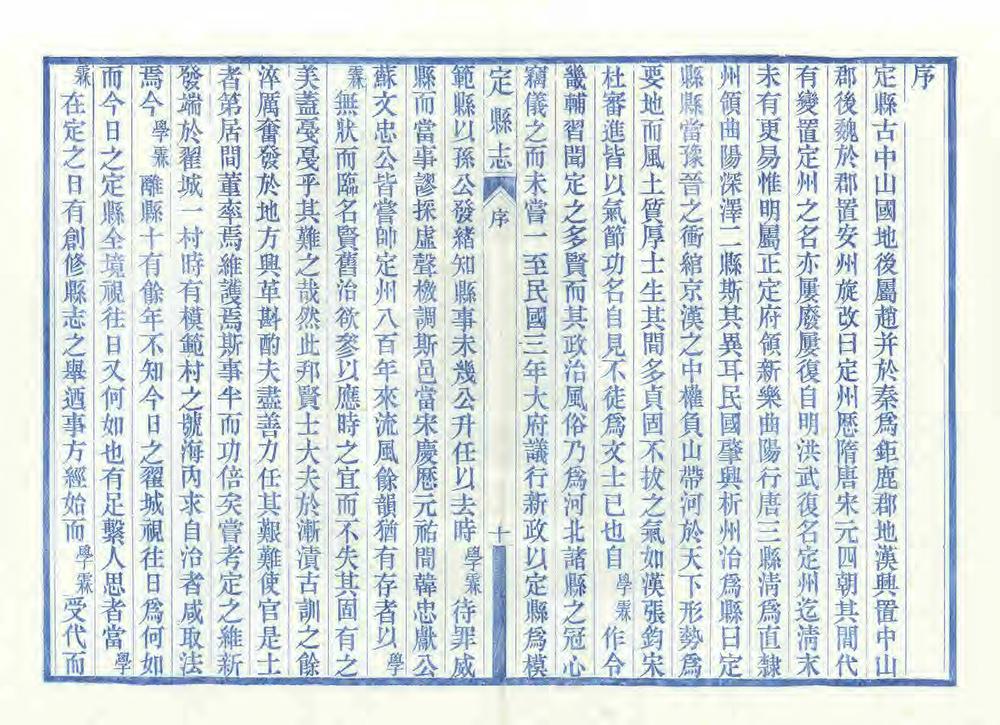 序
定縣古中山國地後屬趙并於秦爲鉅鹿郡地漢興置中山
郡後魏於郡置安州旋改曰定州歷隋唐宋元四朝其間代
有變置定州之名亦屢廢屢復自明洪武復名定州迄淸末
未有更易惟明屬正定府領新樂曲陽行唐三縣淸爲直隸
州領曲陽深澤二縣斯其異耳民國肇興析州治爲縣曰定
縣縣當豫晉之衝綰京漢之中權負山帶河於天下形勢爲
要地而風土質厚士生其間多貞固不拔之氣如漢張鈞宋
杜審進皆以氣節功名自見不徒爲文士已也自學霖作令
畿輔習聞定之多賢而其政治風俗乃爲河北諸縣之冠心
竊儀之而未嘗一至民國三年大府議行新政以定縣爲模
定縣志 序 十
範縣以孫公發緒知縣事未幾公升任以去時學霖待罪威
縣而當事謬採虛聲檄調斯邑當宋慶歷元祐間韓忠獻公
蘇文忠公皆嘗帥定州八百年來流風餘韻猶有存者以學
霖無狀而臨名賢舊治欲參以應時之宜而不失其固有之
美盍戞戞乎其難之哉然此邦賢士大夫於漸漬古訓之餘
淬厲奮發於地方興革斟酌夫盡善力任其艱難使官是土
者第居間董率焉維護焉斯事半而功倍矣嘗考定之維新
發端於翟城一村時有模範村之號海內求自治者咸取法
焉今學霖離縣十有餘年不知今日之翟城視往日爲何如
而今日之定縣全境視往日又何如也有足繫人思者當學
霖在定之日有創修縣志之舉迺事方經始而學霖受代而